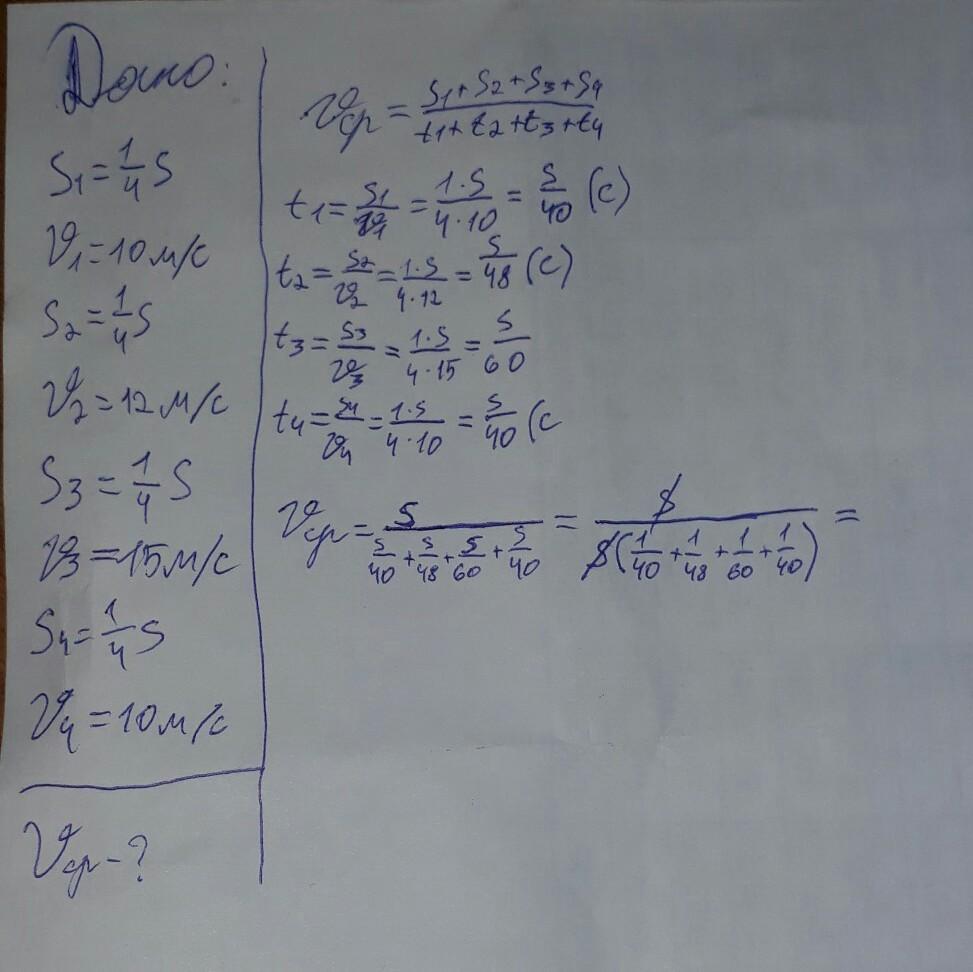 Дано:
S₁ = 1/4 S
𝜗₁ = 10 м/с
S₂ = 1/4 S
𝜗₂ = 12 м/с
S₃ = 1/4 S
𝜗₃ = 15 м/с
S₄ = 1/4 S
𝜗₄ = 10 м/с
𝜗ср - ?
𝜗ср = (S₁ + S₂ + S₃ + S₄)/(t₁ + t₂ + t₃ + t₄)
t₁ = S₁/𝜗₁ = (1·S)/(4·10) = S/40 (с)
t₂ = S₂/𝜗₂ = (1·S)/(4·12) = S/48 (с)
t₃ = S₃/𝜗₃ = (1·S)/(4·15) = S/60
t₄ = S₄/𝜗₄ = (1·S)/(4·10) = S/40 (с
𝜗ср = S/(S/40 + S/48 + S/60 + S/40) = S/(S(1/40 + 1/48 + 1/60 + 1/40)) =